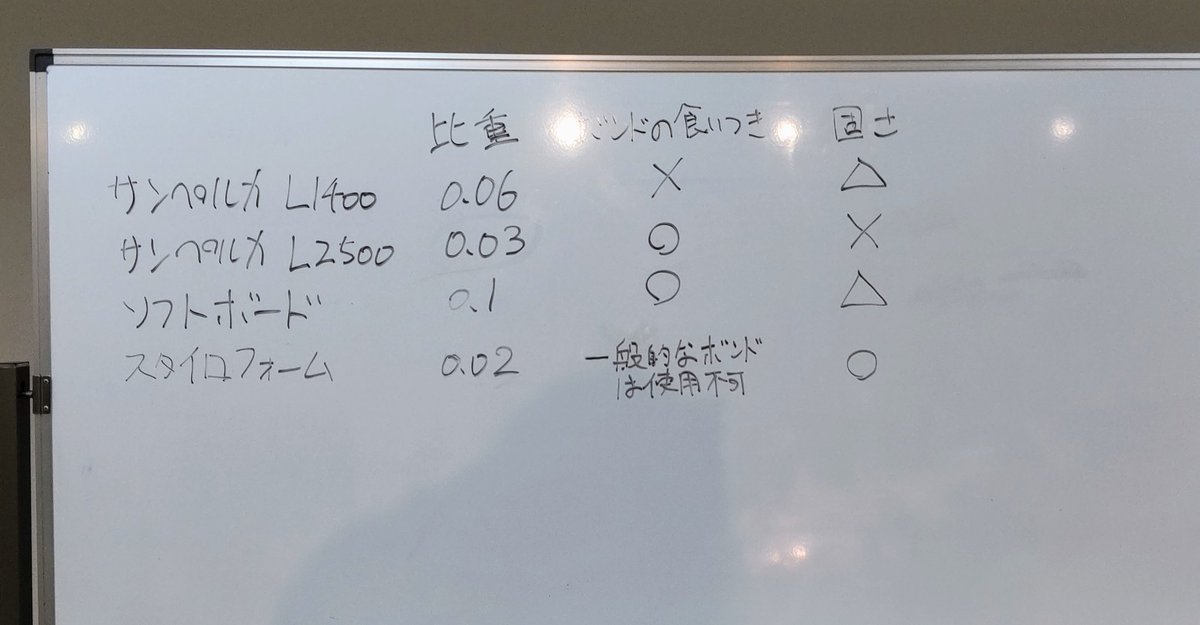 比重 ボンドの食いつき 固さ
サンペルカ L1400 0.06 × △
サンペルカ L2500 0.03 ○ ×
ソフトボード 0.1 ○ △
スタイロフォーム 0.02 一般的なボンド ○
は使用不可